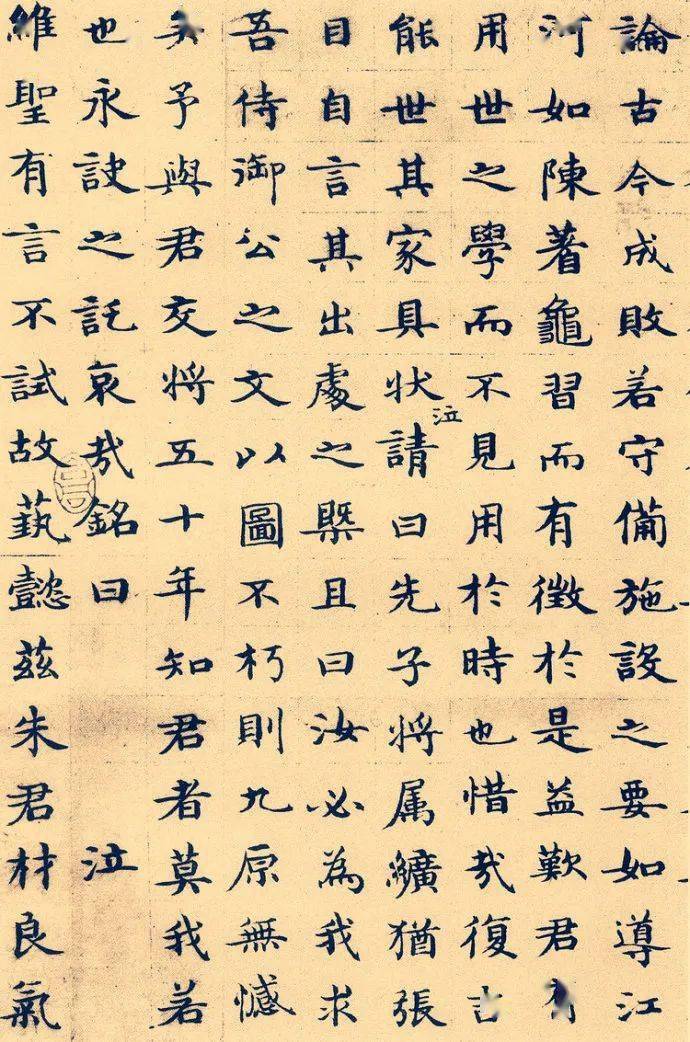 論古今成敗若守備施設之要如導江
河如陳著龜習而有徵於是益歎君有
用世之學而不見用於時也惜哉復吉
能世其家具狀泣請曰先子將属纊猶張
目自言其出處之槩且曰汝必為我求
吾侍御公之文以圖不朽則九原無憾
矣予與君交將五十年知君者莫我若
也永訣之託哀哉銘曰 泣
維聖有言不試故藝懿茲朱君材良氣